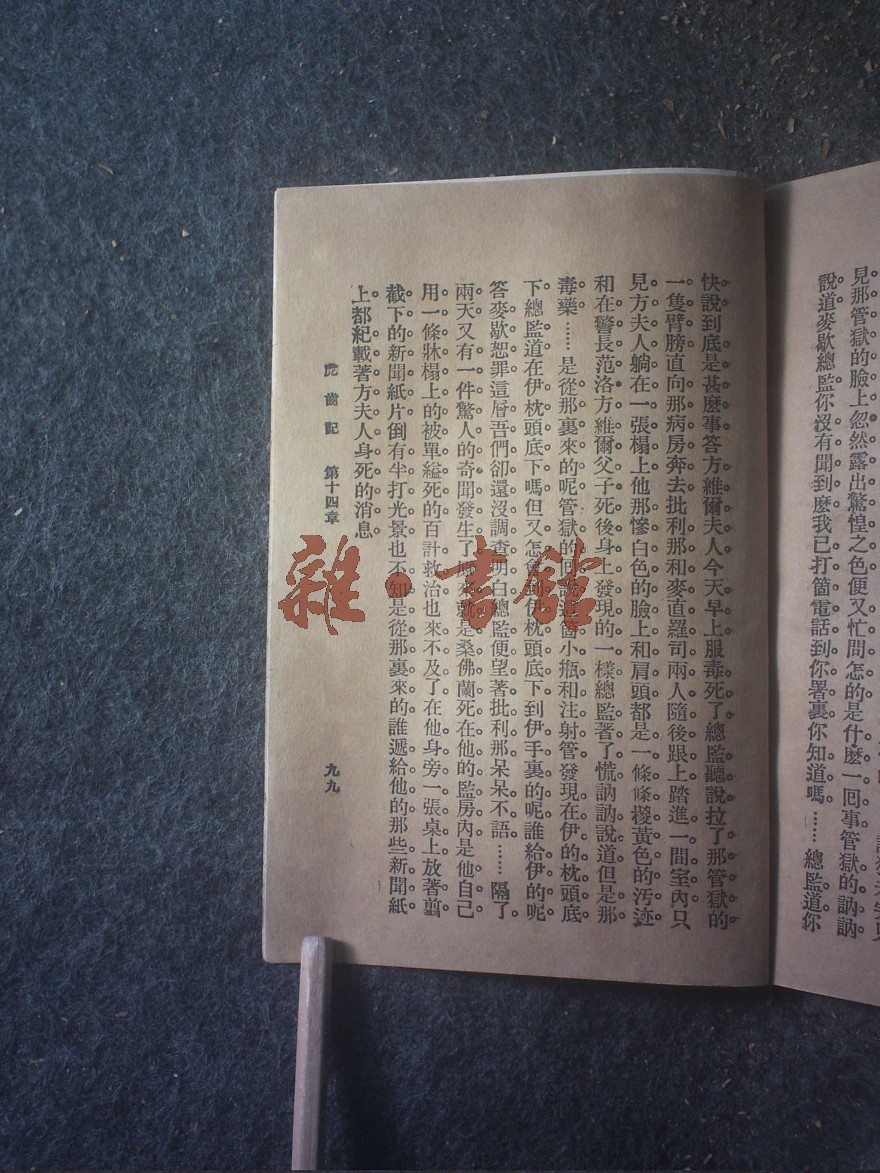 見那管獄的臉上忽然露出驚惶之色便又忙問怎的是什麽一回事管獄的訥訥
說道麥歇總監你沒有聞到麽我已打箇電話到你署裏你知道嗎……總監道你
快說到底是甚麽事答方維爾夫人今天早上服毒死了總監聽說拉了那管獄的
一隻臂膀直向那病房奔去批利那和麥直羅司兩人隨後跟上踏進一間室內只
見方夫人躺在一張榻上他那慘白色的臉上和肩頭都是一條條椶黃色的汚迹
和在警長范洛方維爾父子死後身上發現的一樣總監著了慌訥訥說道但是那
毒藥……是從那裏來的呢管獄的回說這箇小瓶和注射管發現在伊的枕頭底
下總監道在伊枕頭底下嗎但又怎會到伊枕頭底下到伊手裏的呢誰給伊的呢
答麥歇恕罪這層吾們卻還沒調查明白總監便望著批利那呆呆不語……隔了
兩天又有一件驚人的奇聞發生了原來就是桑佛蘭死在他的監房內是他自己
用一條牀榻上的被單縊死的百計救治也來不及了在他身旁一張桌上放著翦
截下的新聞紙片倒有半打光景也不知是從那裏來的誰遞給他的那些新聞紙
上都紀載著方夫人身死的消息
虎齒記 第十四章 九九
雜·書館